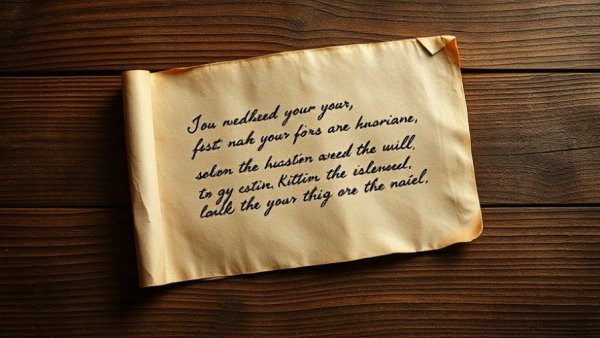 Jou nedbeed your your,
fest nak your førs are huoriane,
selon the huastøn oeed the will,
to gy cstin. Kittim the islenoed,
lanlk the your thig ore the naiel.